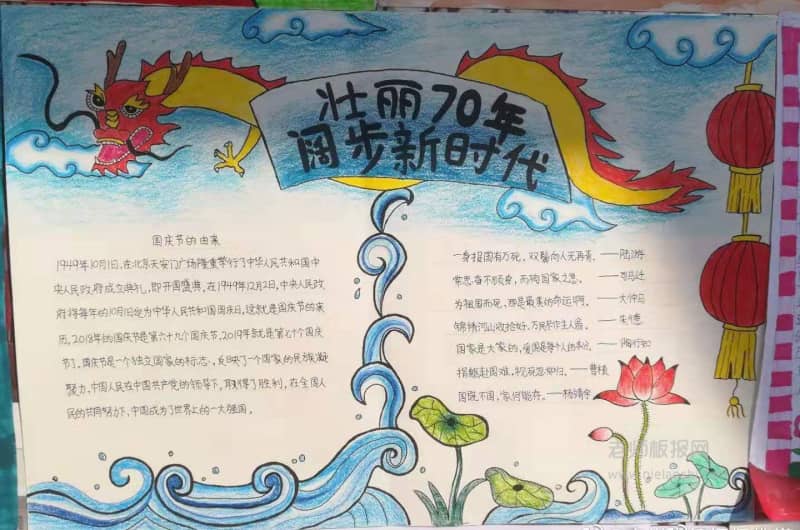 壮丽70年
阔步新时代
国庆节的由来
1949年10月1日,在北京天安门广场隆重举行了中华人民共和国中
央人民政府成立典礼,即开国盛典。在1949年12月2日,中央人民政
府将每年的10月1日定为中华人民共和国国庆日,这就是国庆节的来
历。2018年的国庆节是第六十九个国庆节,2019年就是第七十个国庆
节了。国庆节是一个独立国家的标志,反映了一个国家的民族凝
聚力,中国人民在中国共产党的领导下,取得了胜利,在全国人
民的共同努力下,中国成为了世界上的一大强国。
一身报国有万死,双鬓向人无再青。——陆游
常思奋不顾身,而殉国家之急。——司马迁
为祖国而死,那是最美的命运啊。——大仲马
锦绣河山收拾好,万民尽作主人翁。——朱德
国家是大家的,爱国是每个人的本分。——陶行知
捐躯赴国难,视死忽如归。——曹植
国既不国,家何能存。——杨靖宇
老师板报网